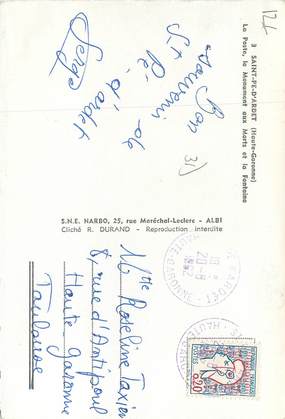 12f
3 SAINT-PÉ-D'ARDET (Haute-Garonne)
La Poste, le Monument aux Morts et la Fontaine
Bon
Souvenir de
St Pé
d'ardet
Serge
31)
S.N.E. NARBO, 25, rue Maréchal-Leclerc - ALBI
Cliché R. DURAND - Reproduction interdite
Mlle Roseline Taxier
8, rue d'Antipoul
Haute Garonne
Toulouse
0,20